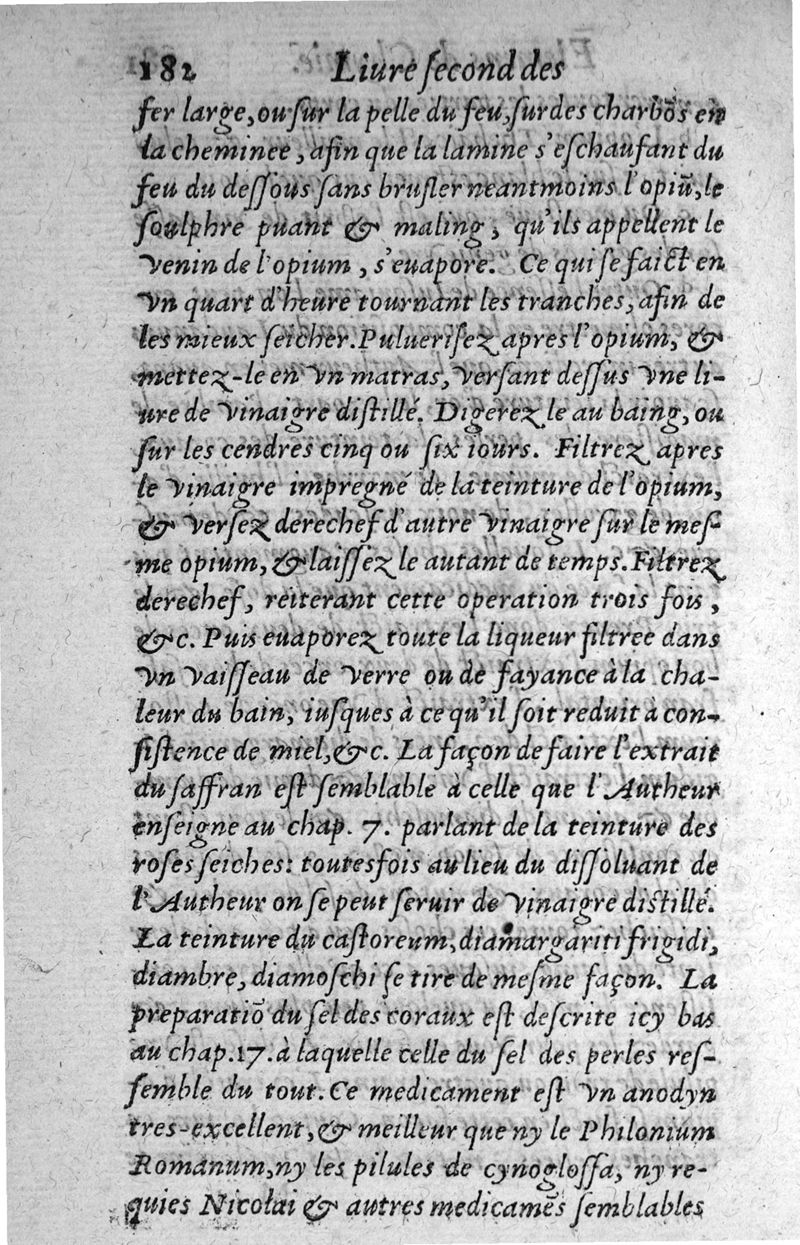 182 Liure ſecond des
fer large, ou ſur la pelle du feu, ſur des charbõs en
la cheminee, afin que la lamine s'eſchaufant du
feu du deſſous ſans bruſler neantmoins l'opiũ, le
ſoulphre puant & maling, qu'ils appellent le
venin de l'opium, s'euapore. Ce qui ſe faict en
vn quart d'heure tournant les tranches, afin de
les mieux ſeicher. Pulueriſez apres l'opium, &
mettez-le en vn matras, verſant deſſus vne li-
ure de vinaigre diſtillé. Digerez le au baing, ou
ſur les cendres cinq ou ſix iours. Filtrez apres
le vinaigre impregné de la teinture de l'opium,
& verſez derechef d'autre vinaigre ſur le meſ-
me opium, & laiſſez le autant de temps. Filtrez
derechef, reiterant cette operation trois fois,
&c. Puis euaporez toute la liqueur filtree dans
vn vaiſſeau de verre ou de fayance à la cha-
leur du bain, iuſques à ce qu'il ſoit reduit à con-
ſiſtence de miel, &c. La façon de faire l'extrait
du ſaffran eſt ſemblable à celle que l'Autheur
enſeigne au chap. 7. parlant de la teinture des
roſes ſeiches: toutesfois au lieu du diſſoluant de
l'Autheur on ſe peut ſeruir de vinaigre diſtillé.
La teinture du caſtoreum, diamargariti frigidi,
diambre, diamoſchi ſe tire de meſme façon. La
preparatiõ du ſel des coraux eſt deſcrite icy bas
au chap. 17. à laquelle celle du ſel des perles reſ-
ſemble du tout. Ce medicament eſt vn anodyn
tres-excellent, & meilleur que ny le Philonium
Romanum, ny les pilules de cynogloſſa, ny re-
quies Nicolai & autres medicamẽs ſemblables